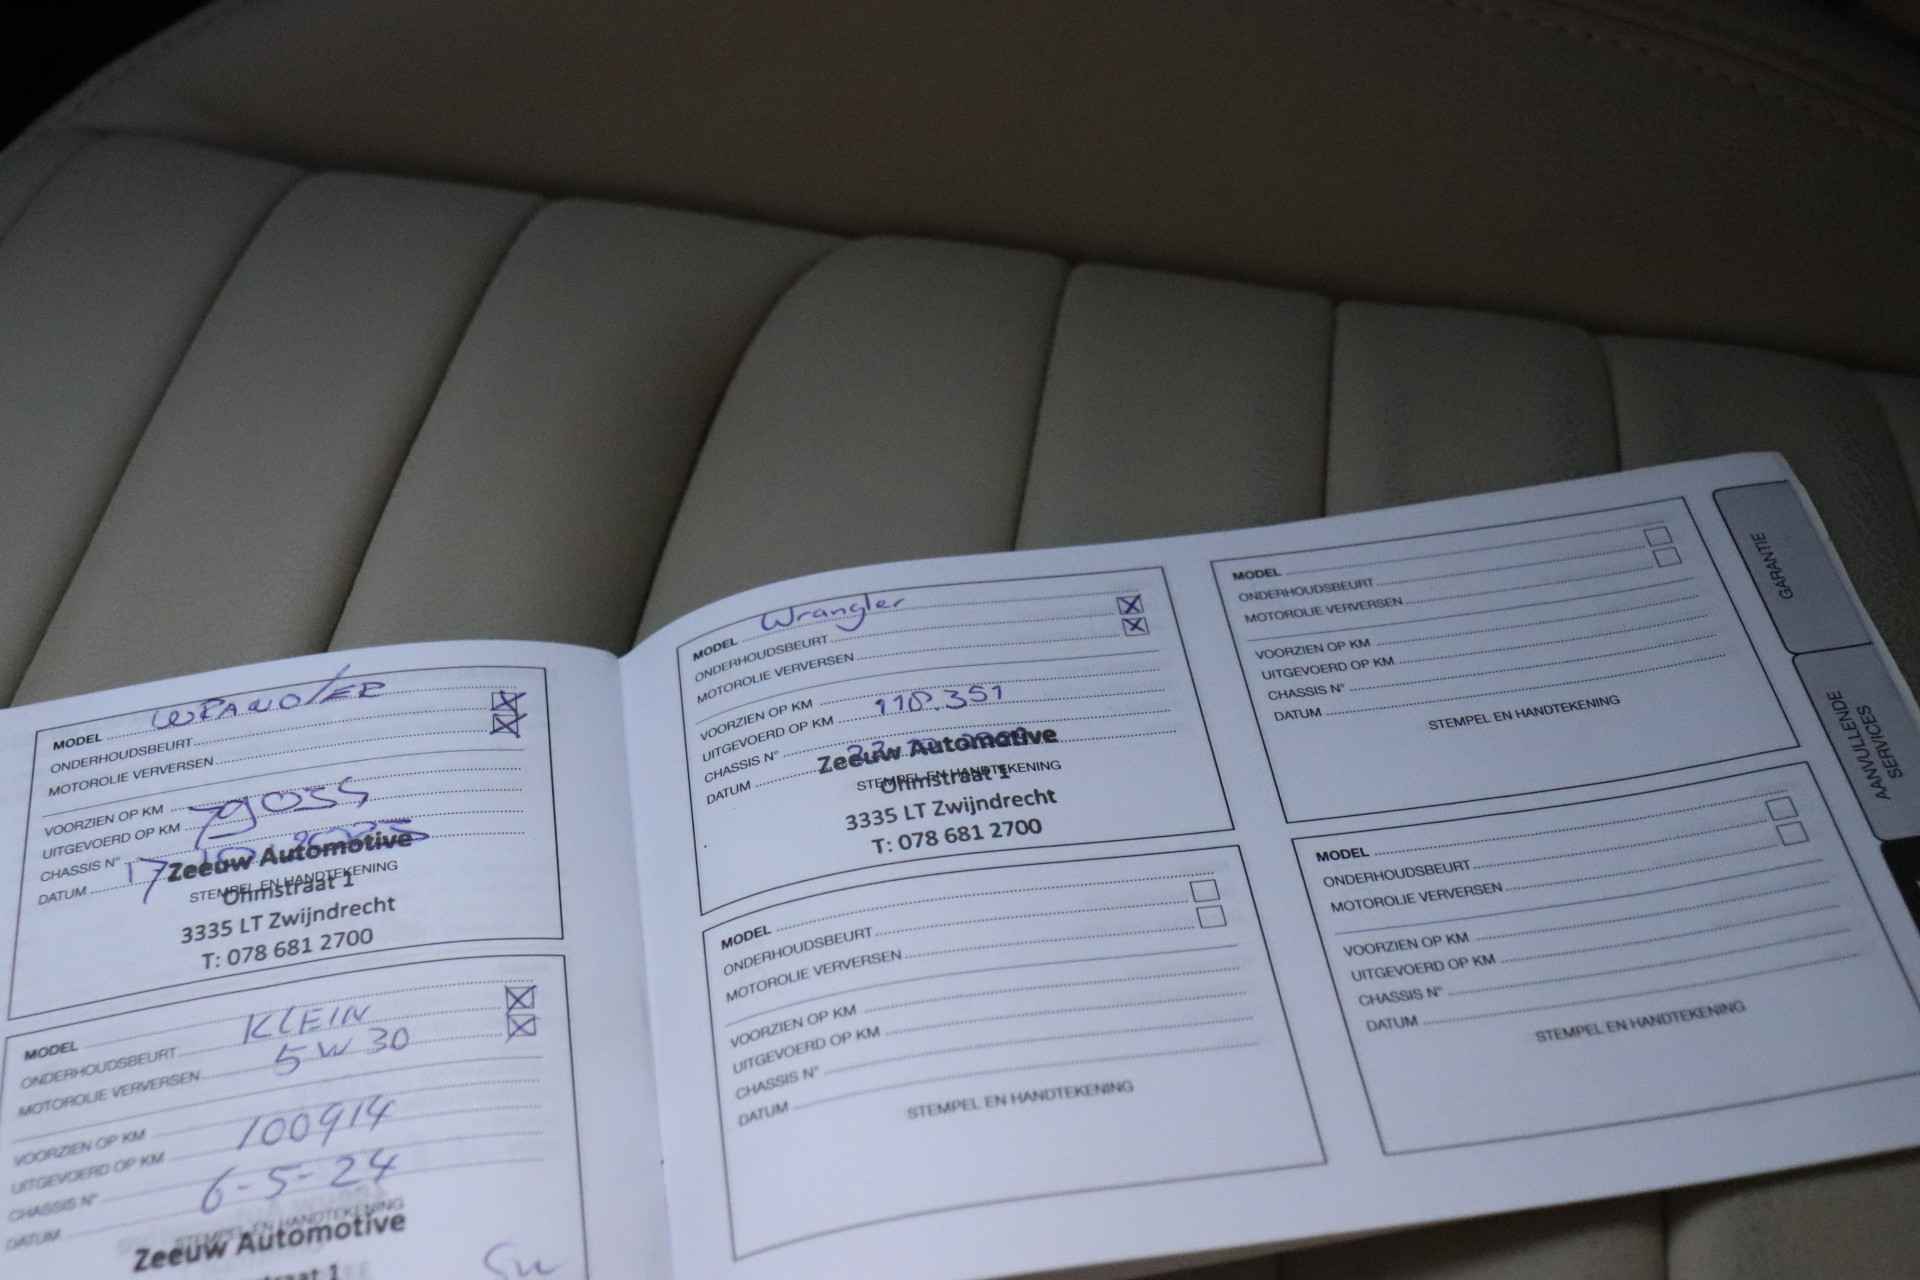 MODEL WRANGLER
ONDERHOUDSBEURT
MOTOROLIE VERVERSEN
VOORZIEN OP KM
UITGEVOERD OP KM 79055
CHASSIS N°
DATUM 17
STEMPEL EN HANDTEKENING
Zeeuw Automotive
Ohmstraat 1
3335 LT Zwijndrecht
T: 078 681 2700
MODEL
ONDERHOUDSBEURT KLEIN
MOTOROLIE VERVERSEN 5W30
VOORZIEN OP KM
UITGEVOERD OP KM 100914
CHASSIS N°
DATUM 6-5-24
STEMPEL EN HANDTEKENING
Zeeuw Automotive
MODEL Wrangler
ONDERHOUDSBEURT
MOTOROLIE VERVERSEN
VOORZIEN OP KM
UITGEVOERD OP KM 110.351
CHASSIS N°
DATUM
STEMPEL EN HANDTEKENING
Zeeuw Automotive
Ohmstraat 1
3335 LT Zwijndrecht
T: 078 681 2700
MODEL
ONDERHOUDSBEURT
MOTOROLIE VERVERSEN
VOORZIEN OP KM
UITGEVOERD OP KM
CHASSIS N°
DATUM
STEMPEL EN HANDTEKENING
MODEL
ONDERHOUDSBEURT
MOTOROLIE VERVERSEN
VOORZIEN OP KM
UITGEVOERD OP KM
CHASSIS N°
DATUM
STEMPEL EN HANDTEKENING
MODEL
ONDERHOUDSBEURT
MOTOROLIE VERVERSEN
VOORZIEN OP KM
UITGEVOERD OP KM
CHASSIS N°
DATUM
STEMPEL EN HANDTEKENING
GARANTIE
AANVULLENDE
SERVICES